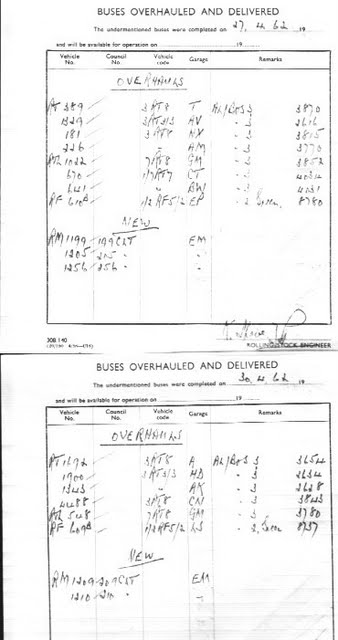 BUSES OVERHAULED AND DELIVERED
The undermentioned buses were completed on 27.4.62 19
and will be available for operation on 19
Vehicle No. Council No. Vehicle code Garage Remarks
OVERHAULS
RT 389 3RT8 T 3 3870
1329 3RT3/3 AV - 3 2616
181 3RT8 NX - 3 3815
226 " AM - 3 3770
1022 7RT8 GM - 3 3852
670 1/7RT7 CT - 3 4034
641 " BW - 3 4031
RF 610 1/2 RF5/2 EP - 2 Green. 8780
NEW
RM 1199 199 CLT EM
1205 205 "
1256 256 "
308 140
ROLLING STOCK ENGINEER
BUSES OVERHAULED AND DELIVERED
The undermentioned buses were completed on 30.4.62 19
and will be available for operation on 19
Vehicle No. Council No. Vehicle code Garage Remarks
OVERHAULS
RT 1692 3RT8 A 3 3654
1900 3RT3/3 HD - 3 2634
1343 " AK - 3 2628
4488 3RT8 CN - 3 3843
548 7RT8 GM - 3 3780
RF 609 1/2 RF5/2 LS - 2 Green 8737
NEW
RM 1209 209 CLT EM
1210 210 "